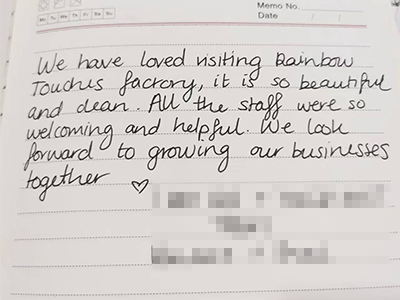 Memo No.
Mo Tu We Th Fr Sa Su
Date / /
We have loved visiting Rainbow
Touches factory, it is so beautiful
and clean. All the staff were so
welcoming and helpful. We look
forward to growing our businesses
together ♡